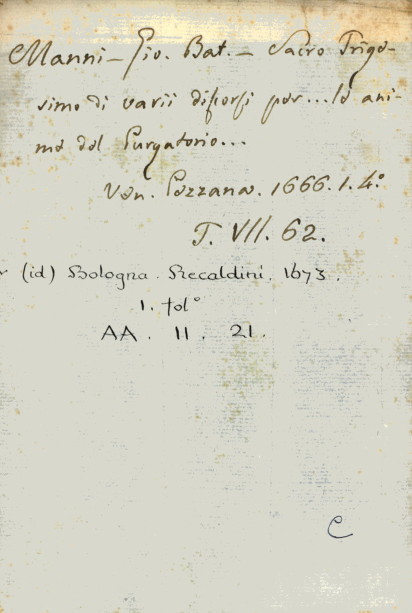 Manni - Gio. Bat. - Sacro Trige-
simo di varii discorsi per ... le ani-
me del Purgatorio...
Ven. Pezzana. 1666. 1. 4.º
T. VII. 62.
(id) Bologna. Recaldini. 1673.
1. folº
AA. II. 21.
C